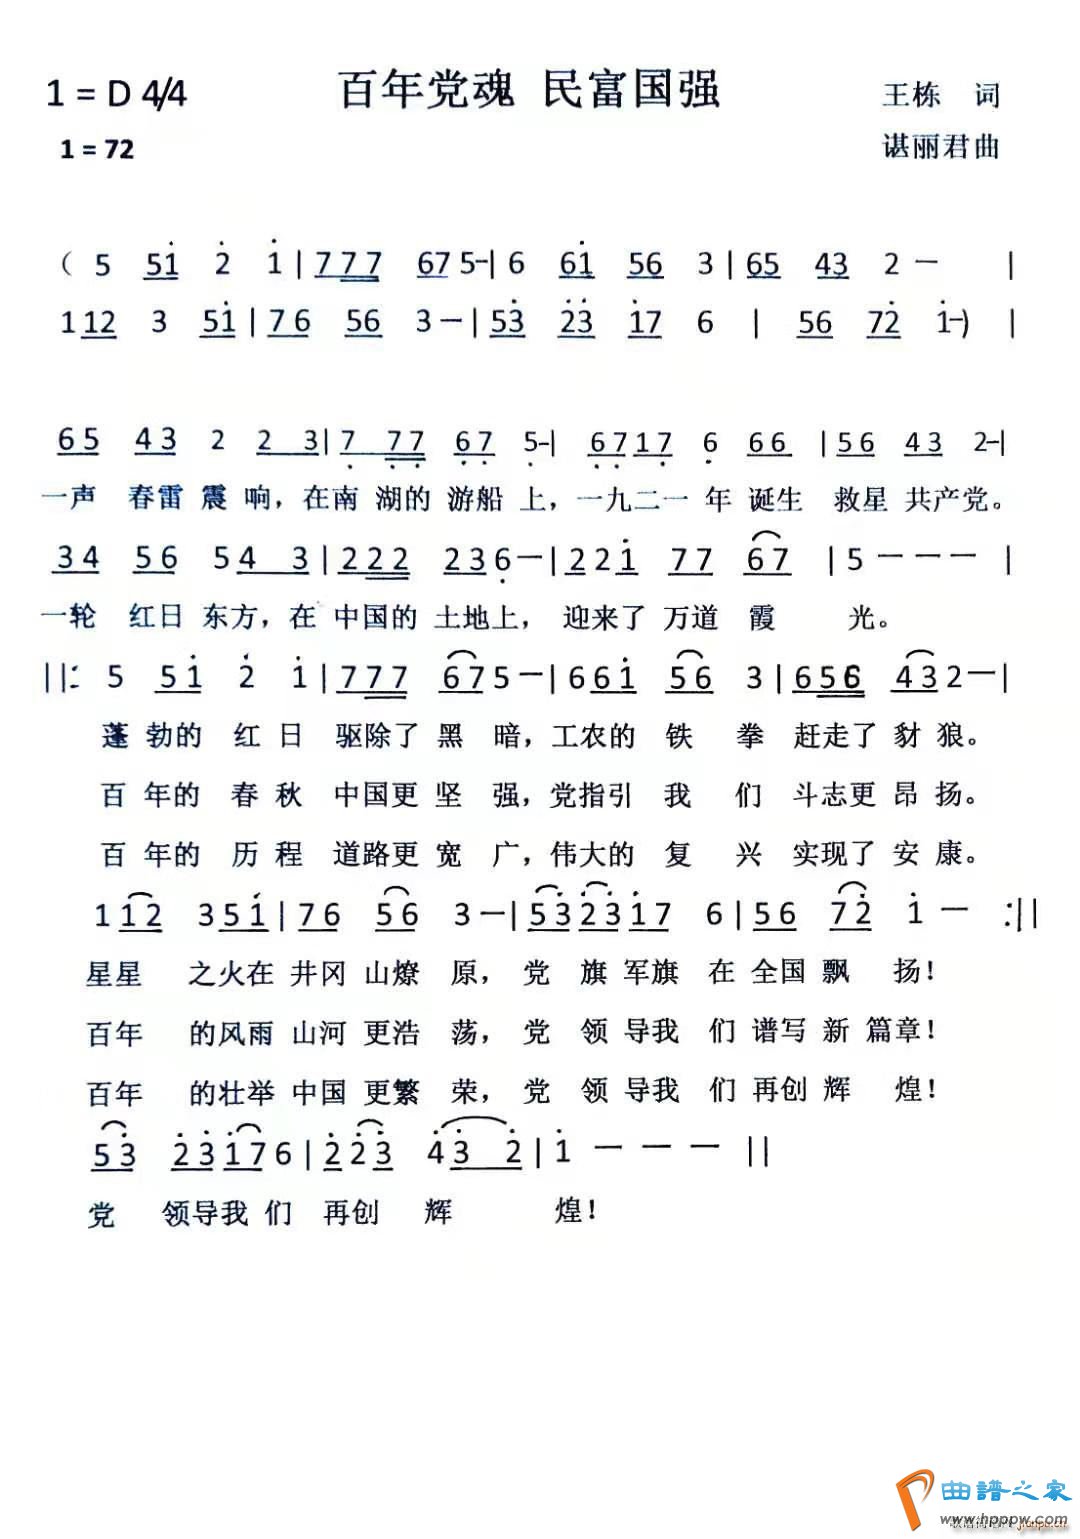 1 = D 4/4 百年党魂 民富国强 王栋 词
1 = 72 谌丽君曲
（ 5 51̇ 2̇ 1̇ | 777 67 5– | 6 61̇ 56 3 | 65 43 2 — |
1 12 3 51̇ | 76 56 3 — | 53̇ 2̇3̇ 1̇7 6 | 56 72̇ 1̇–) |
65 43 2 2 3 | 7̣ 7̣7̣ 6̣7̣ 5̣– | 6̣7̣17̣ 6̣ 66 | 56 43 2– |
一声 春雷 震 响，在南 湖的 游船 上，一九二一 年 诞生 救星 共产党。
34 56 54 3 | 222 236̣ — | 221̇ 77 67 | 5 — — — |
一轮 红日 东方，在 中国的 土地上， 迎来了 万道 霞 光。
||: 5 51̇ 2̇ 1̇ | 777 675 — | 661̇ 56 3 | 656 432 — |
蓬 勃的 红 日 驱除了 黑 暗，工农的 铁 拳 赶走了 豺 狼。
百 年的 春 秋 中国更 坚 强，党指引 我 们 斗志更 昂 扬。
百 年的 历 程 道路更 宽 广，伟大的 复 兴 实现了 安 康。
1 12 351̇ | 76 56 3 — | 53̇2̇3̇1̇7 6 | 56 72̇ 1̇ — :||
星星 之火在 井冈 山燎 原， 党 旗 军旗 在 全国 飘 扬！
百年 的风雨 山河 更浩 荡， 党 领 导我 们 谱写 新 篇章！
百年 的壮举 中国 更繁 荣， 党 领 导我 们 再创 辉 煌！
53̇ 2̇3̇1̇76 | 2̇ 2̇3̇ 4̇3̇ 2̇ | 1̇ — — — ||
党 领导我 们 再创 辉 煌！
曲谱之家
www.hppp.com